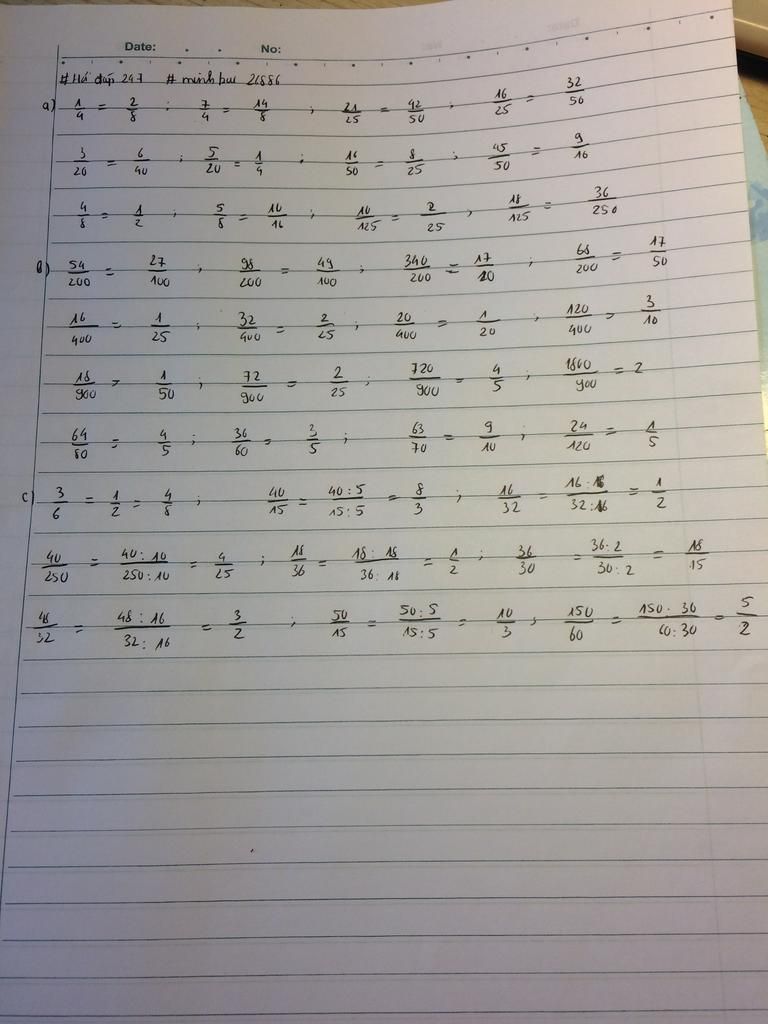 Date: No:
# Hỏi đáp 247 # minh bui 26886
a) 1/4 = 2/8 ; 7/4 = 14/8 ; 21/25 = 42/50 ; 16/25 = 32/50
3/20 = 6/40 ; 5/20 = 1/4 ; 16/50 = 8/25 ; 45/50 = 9/10
4/8 = 1/2 ; 5/8 = 10/16 ; 10/125 = 2/25 ; 18/125 = 36/250
b) 54/200 = 27/100 ; 98/200 = 49/100 ; 340/200 = 17/10 ; 68/200 = 17/50
16/400 = 1/25 ; 32/400 = 2/25 ; 20/400 = 1/20 ; 120/400 = 3/10
18/900 = 1/50 ; 72/900 = 2/25 ; 720/900 = 4/5 ; 1800/900 = 2
64/80 = 4/5 ; 36/60 = 3/5 ; 63/70 = 9/10 ; 24/120 = 1/5
c) 3/6 = 1/2 = 4/8 ; 40/15 = 40:5/15:5 = 8/3 ; 16/32 = 16:16/32:16 = 1/2
40/250 = 40:10/250:10 = 4/25 ; 18/36 = 18:18/36:18 = 1/2 ; 36/30 = 36:2/30:2 = 18/15
48/32 = 48:16/32:16 = 3/2 ; 50/15 = 50:5/15:5 = 10/3 ; 150/60 = 150:30/60:30 = 5/2